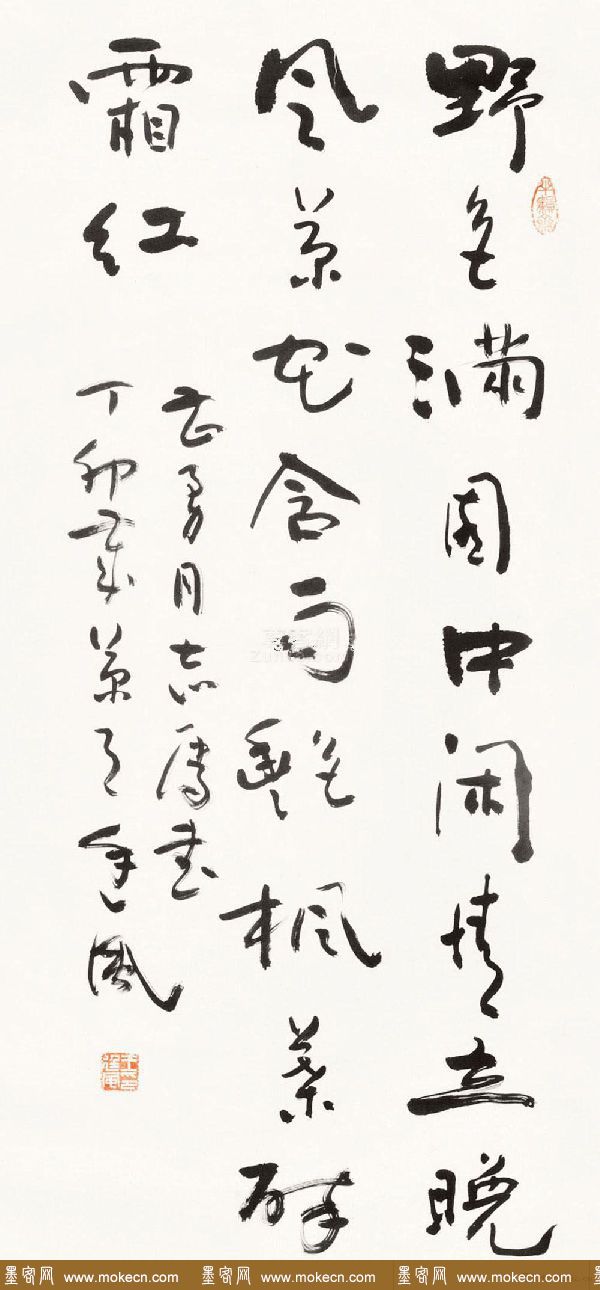 野色满园中闲情立晚
风菊花含雨艳枫叶醉
霜红
志勇同志属书
丁卯岁菊月
墨客网 www.mokecn.com 墨客网 www.mokecn.com 墨客网 www.mokecn.com